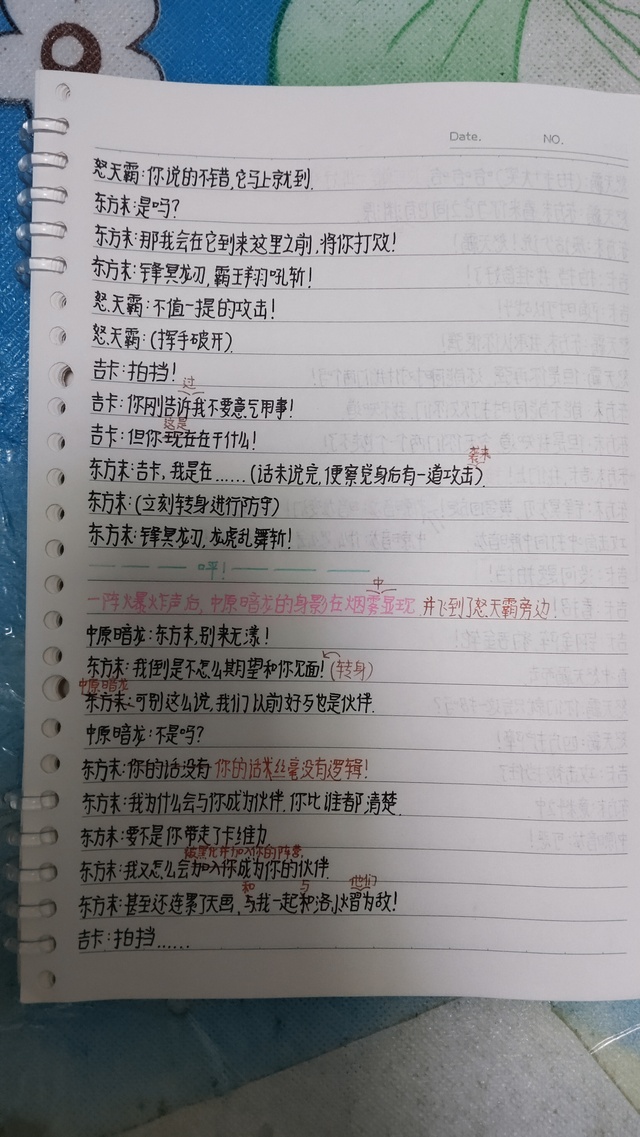 Date.    NO.
怒天霸:你说的不错,它马上就到.
东方末:是吗?
东方末:那我会在它到来这里之前,将你打败!
东方末:锋冥龙刃,霸王翔吼斩!
怒天霸:不值一提的攻击!
怒天霸:(挥手破开).
吉卡:拍挡!
过
吉卡:你刚告诉我不要意气用事!
这是
吉卡:但你现在在干什么!
袭来
东方末:吉卡,我是在……(话未说完,便察觉身后有一道攻击).
东方末:(立刻转身进行防守)
东方末:锋冥龙刃,龙虎乱舞斩!
— — — 呯! — — — —
中
一阵火爆炸声后,中原暗龙的身影在烟雾显现,并飞到了怒天霸旁边!
中原暗龙:东方末,别来无漾!
东方末:我倒是不怎么期望和你见面!(转身)
中原暗龙
东方末:可别这么说,我们以前好歹也是伙伴.
中原暗龙:不是吗?
东方末:你的话没有 你的话丝毫没有逻辑!
东方末:我为什么会与你成为伙伴.你比谁都清楚.
东方末:要不是你带走了卡维力.
被黑化并加入你的阵营.
东方末:我又怎么会加入你成为你的伙伴.
和 与 他们
东方末:甚至还连累了天画,与我一起和洛小熠为敌!
吉卡:拍挡……